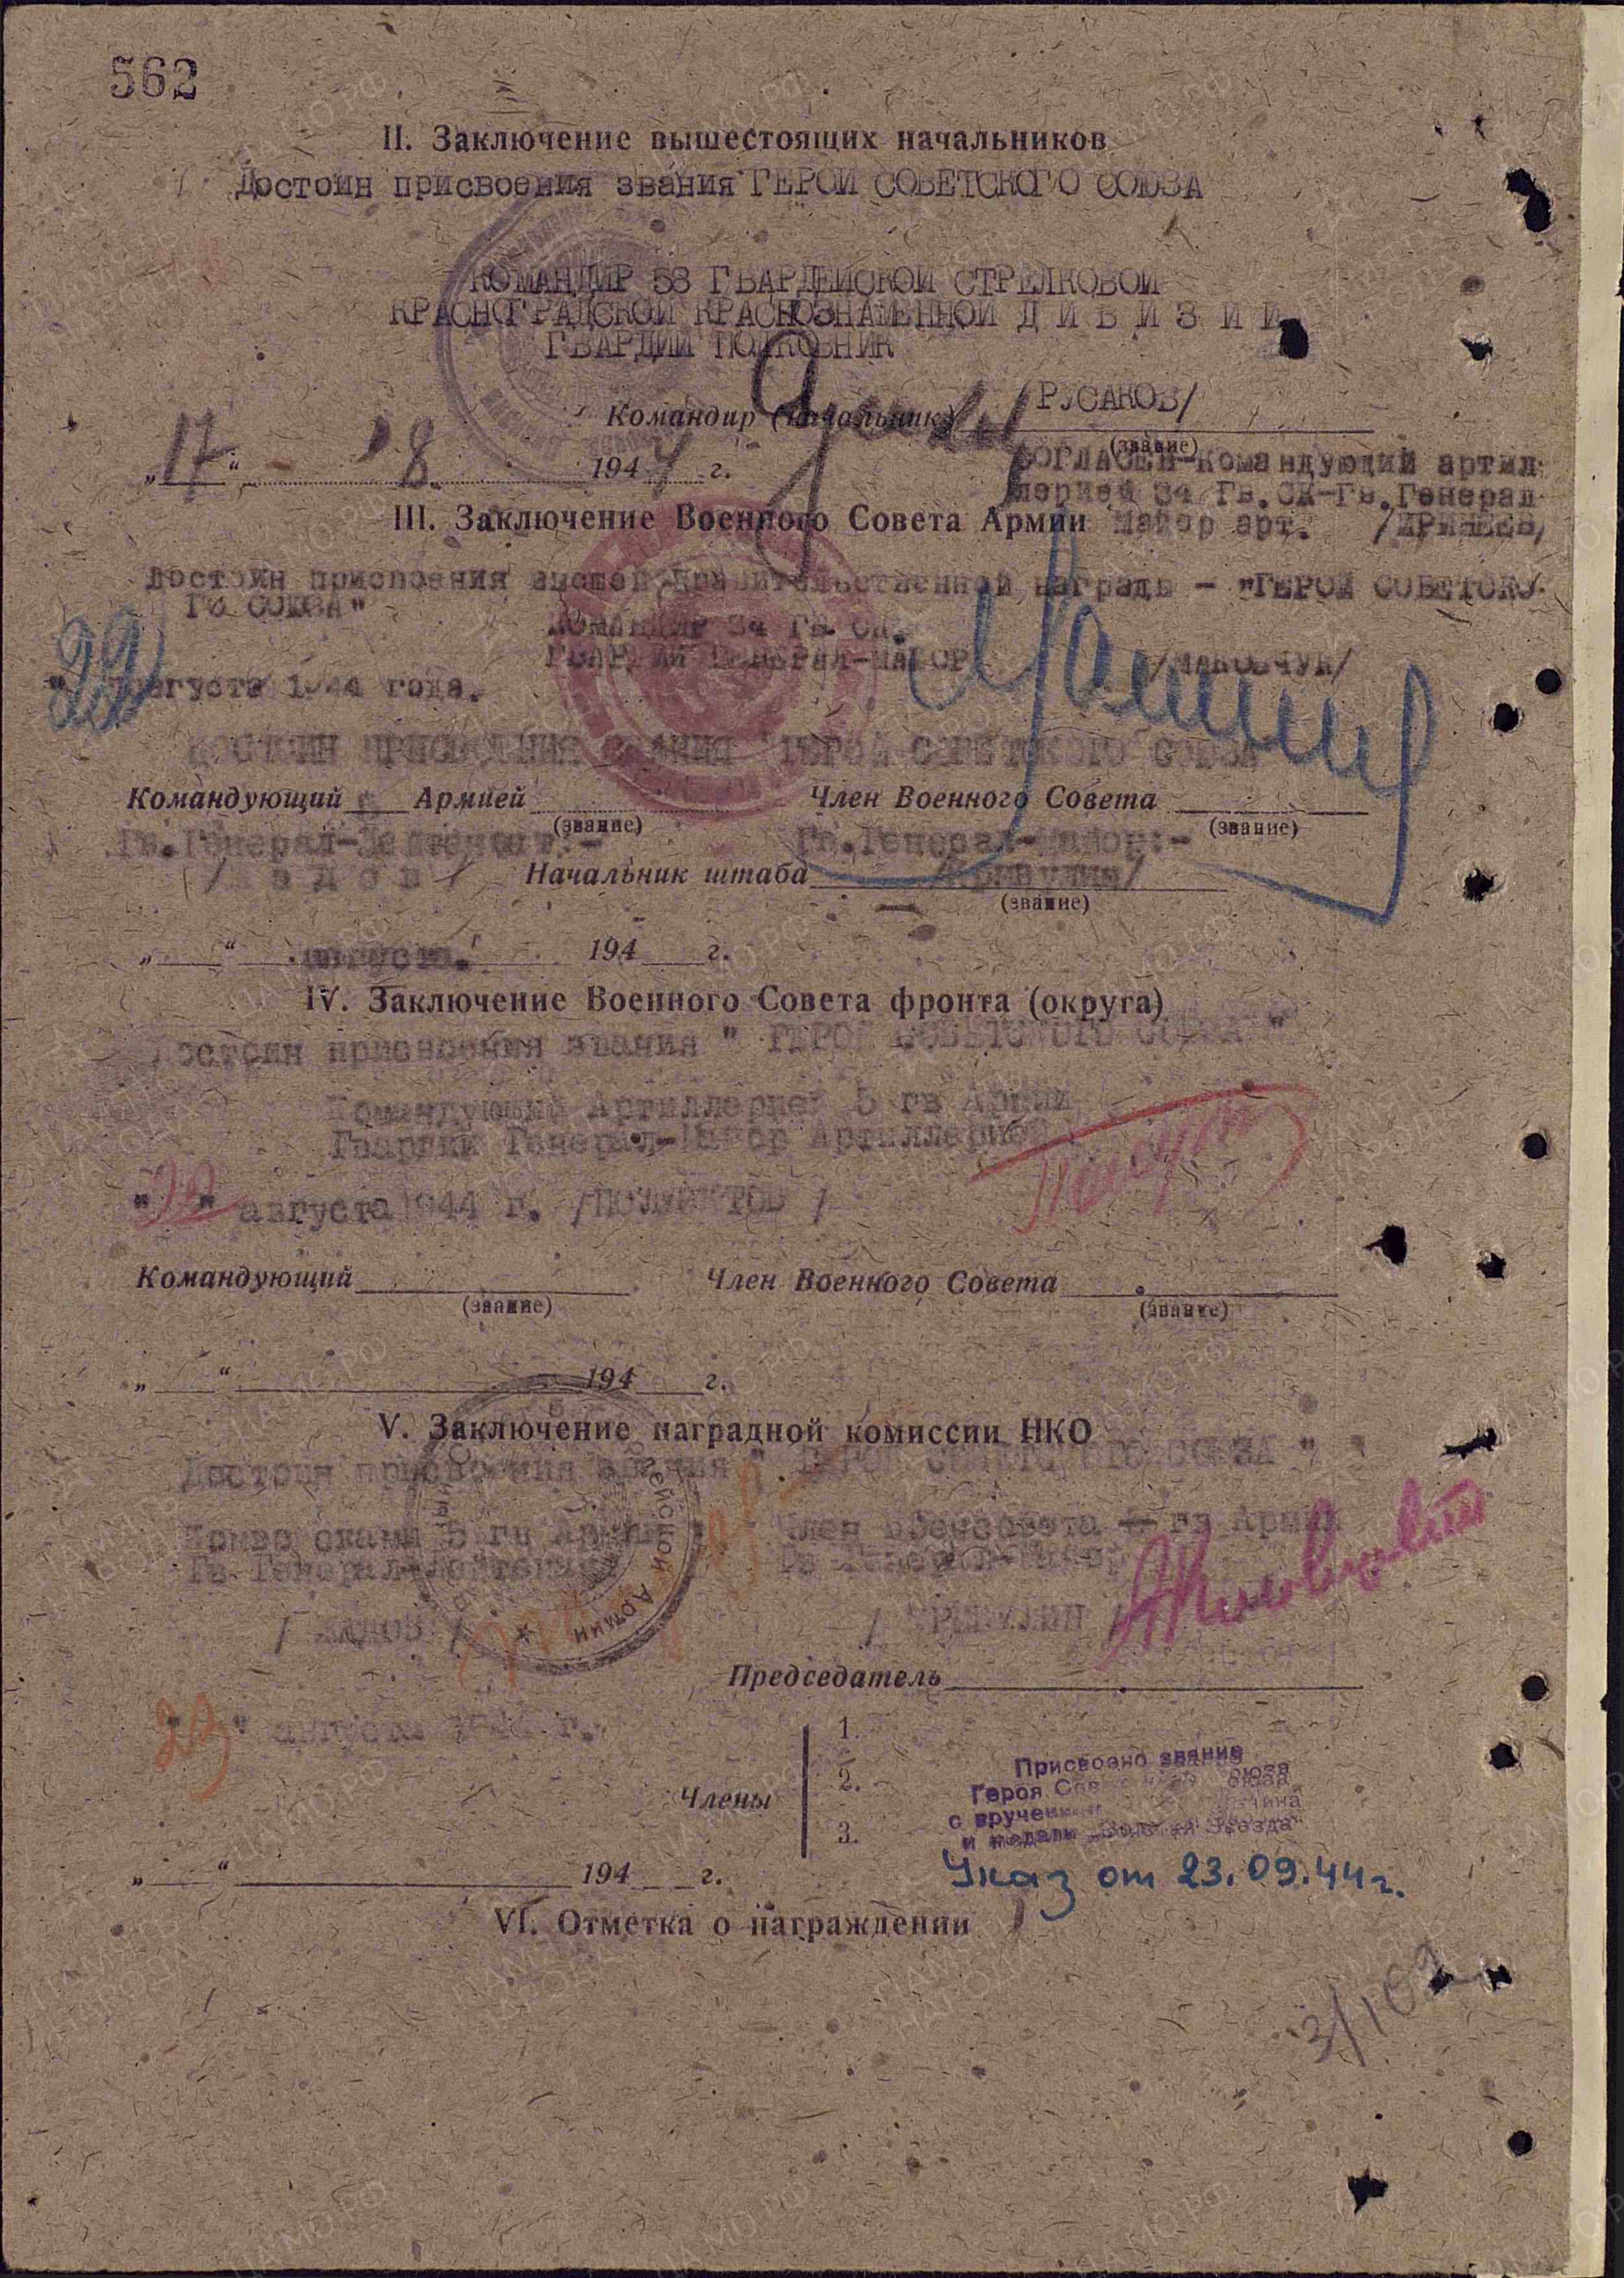 562
II. Заключение вышестоящих начальников
Достоин присвоения звания ГЕРОЙ СОВЕТСКОГО СОЮЗА
КОМАНДИР 58 ГВАРДЕЙСКОЙ СТРЕЛКОВОЙ
КРАСНОГРАДСКОЙ КРАСНОЗНАМЕННОЙ Д И В И З И И
ГВАРДИИ ПОЛКОВНИК
/РУСАКОВ/
Командир (начальник)
(звание)
„17“ 8. 1944 г.
СОГЛАСЕН-Командующий артил-
лерией 34 Гв.СК-Гв.Генерал
III. Заключение Военного Совета Армии
Майор арт.
Достоин присвоения высшей правительственной награды - "ГЕРОЙ СОВЕТСКО-
ГО СОЮЗА"
КОМАНДИР 34 ГВ. СК.
ГВАРДИИ ГЕНЕРАЛ-МАЙОР
"22 августа 1944 года.
ДОСТОИН ПРИСВОЕНИЯ ЗВАНИЯ "ГЕРОЙ СОВЕТСКОГО СОЮЗА"
Командующий Армией
Член Военного Совета
(звание)
(звание)
Гв.Генерал-Лейтенант:-
Гв.Генерал-Майор:-
/Ж а д о в/
Начальник штаба
/Кривулин/
(звание)
„ “ августа. 194 г.
IV. Заключение Военного Совета фронта (округа)
Достоин присвоения звания " ГЕРОЙ СОВЕТСКОГО СОЮЗА "
Командующий Артиллерией 5 гв Армии
Гвардии Генерал-Майор Артиллерии
" " августа 1944 г. /ПОЛУЭКТОВ /
Командующий
Член Военного Совета
(звание)
(звание)
„ “ 194 г.
V. Заключение наградной комиссии НКО
Достоин присвоения звания " ГЕРОЙ СОВЕТСКОГО СОЮЗА "
5 гв Армии
Член Военсовета 5 гв Армии
Гв Генерал-лейтенант
Гв Генерал-Майор
/ ЖАДОВ /
/ КРИВУЛИН /
Председатель
" августа 1944 г.
Члены
1.
2.
3.
Присвоено звание
Героя Советского Союза
с вручением Ленина
и медали „Золотая Звезда"
Указ от 23.09.44г.
„ “ 194 г.
VI. Отметка о награждении